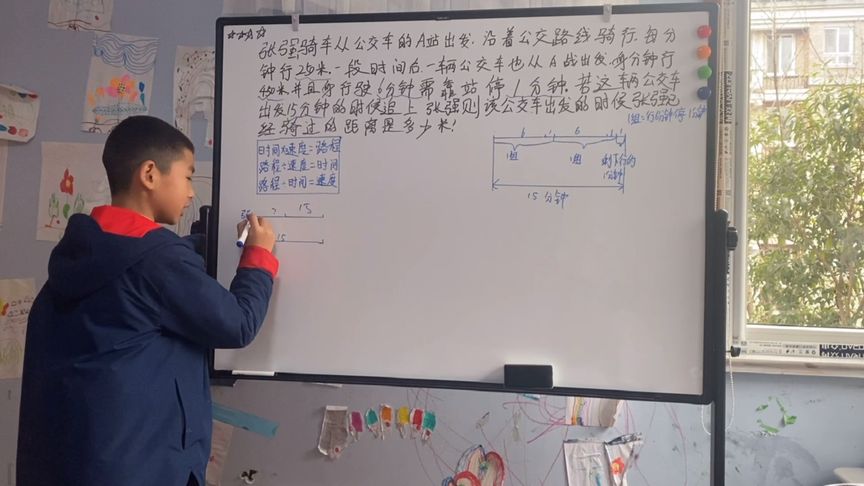 张强骑车从公交车的A站出发,沿着公交路线骑行,每分
钟行250米,一段时间后,一辆公交车也从A战出发,每分钟行
450米并且每行驶6分钟需靠站停1分钟。若这辆公交车
出发15分钟的时候追上张强则该公交车出发的时候张强已
经骑过的距离是多少米!
1组=行6分钟停1分钟
时间×速度=路程
路程÷速度=时间
路程÷时间=速度
6 1 6 1 1
1组 1组 剩下行的
1分钟
15分钟
张 ? 15
15